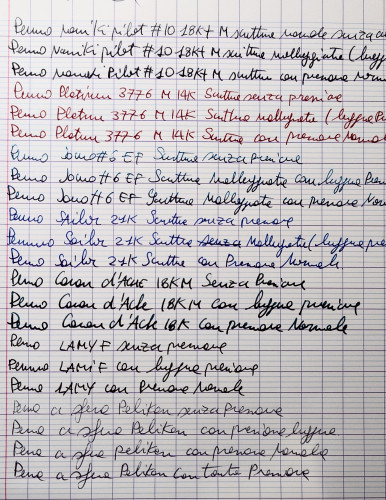 Penno Namiki pilot #10 18K+ M scritture normale senza
Penno Namiki pilot #10 18K+ M scritture molleggiata (
Penno Namiki Pilot #10 18K+ M scrittura con pressione norma
Penno Platinum 3776 M 14K Scrittura senza pressione
Penno Platinum 3776 M 14K Scrittura molleggiata (leggera Pre
Penno Platinum 3776 M 14K Scrittura con pressione Normal
Penno Jowo#6 EF Scrittura senza pressione
Penno Jowo #6 EF Scrittura molleggiata con leggera Pres
Penno Jowo #6 EF Scrittura Molleggiata con pressione Norm
Penno Sailor 21K Scrittura senza pressione
Pennino Sailor 21K Scrittura senza Molleggiata (leggera pre
Penno Sailor 21K Scrittura con Pressione Normale.
Penno Caran d'ACHE 18KM Senza Pressione
Penno Caran d'Ache 18KM con leggera pressione
Penno Caran d'Ache 18K con pressione Normale
Penno LAMY F senza pressione
Pennino LAMY F con leggera pressione
Penno LAMY con Pressione Normale
Penna a sfera Pelikan senza Pressione
Penna a sfera Pelikan con pressione leggera
Penna a sfera pelikan con pressione normale
Penna a sfera Pelikan Con tanta Pressione